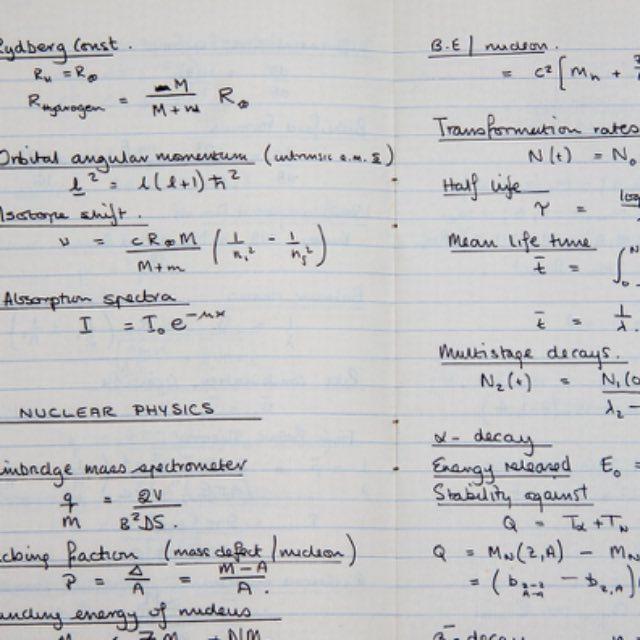 Rydberg Const.
R_H = R_∞
R_Hydrogen = M / M+m R_∞
Orbital angular momentum (intrinsic a.m. s)
l² = l(l+1) ħ²
Isotope shift.
ν = c R_∞ M / M+m (1/n_i² - 1/n_j²)
Absorption spectra
I = I₀ e^-μx
NUCLEAR PHYSICS
inbridge mass spectrometer
q/m = 2V / B²DS.
cking fraction (mass defect / nucleon)
P = Δ/A = M-A / A.
nding energy of nucleus
B.E / nucleon.
= c² [ M_n +
Transformation rates
N(t) = N₀
Half life
τ =
Mean life time
t̄ = ∫₀
t̄ = 1/λ
Multistage decays.
N₂(t) = N₁(0 / λ₂ -
α- decay
Energy released E₀ =
Stability against
Q = T_α + T_N
Q = M_N(Z,A) - M_N
= (b_Z-2 A-4 - b_Z,A)
β- decay